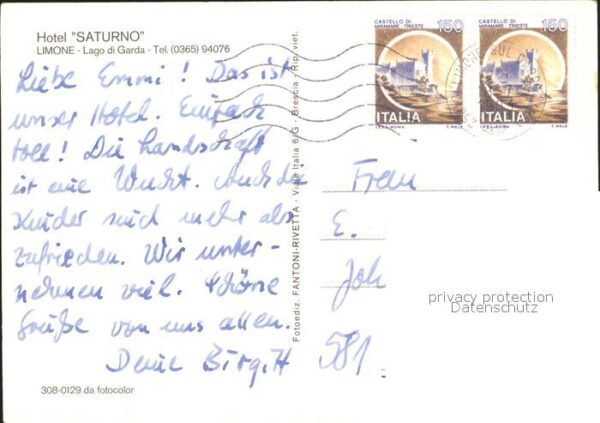 Hotel "SATURNO"
LIMONE - Lago di Garda - Tel. (0365) 94076
Liebe Emmi! Das ist
unser Hotel. Einfach
toll! Die Landschaft
ist eine Wucht. Auch die
Kinder sind mehr als
zufrieden. Wir unter-
nehmen viel. Schöne
Grüße von uns allen.
Deine Birgitt
308-0129 da fotocolor
Fotoediz. FANTONI-RIVETTA - Viale Italia 6/G - Brescia - Rip. viet.
CASTELLO DI
MIRAMARE - TRIESTE
150
ITALIA
I.P.Z.S. - ROMA
T. MELE
CASTELLO DI
MIRAMARE - TRIESTE
150
ITALIA
I.P.Z.S. - ROMA
T. MELE
Frau
E.
Joh
581
privacy protection
Datenschutz